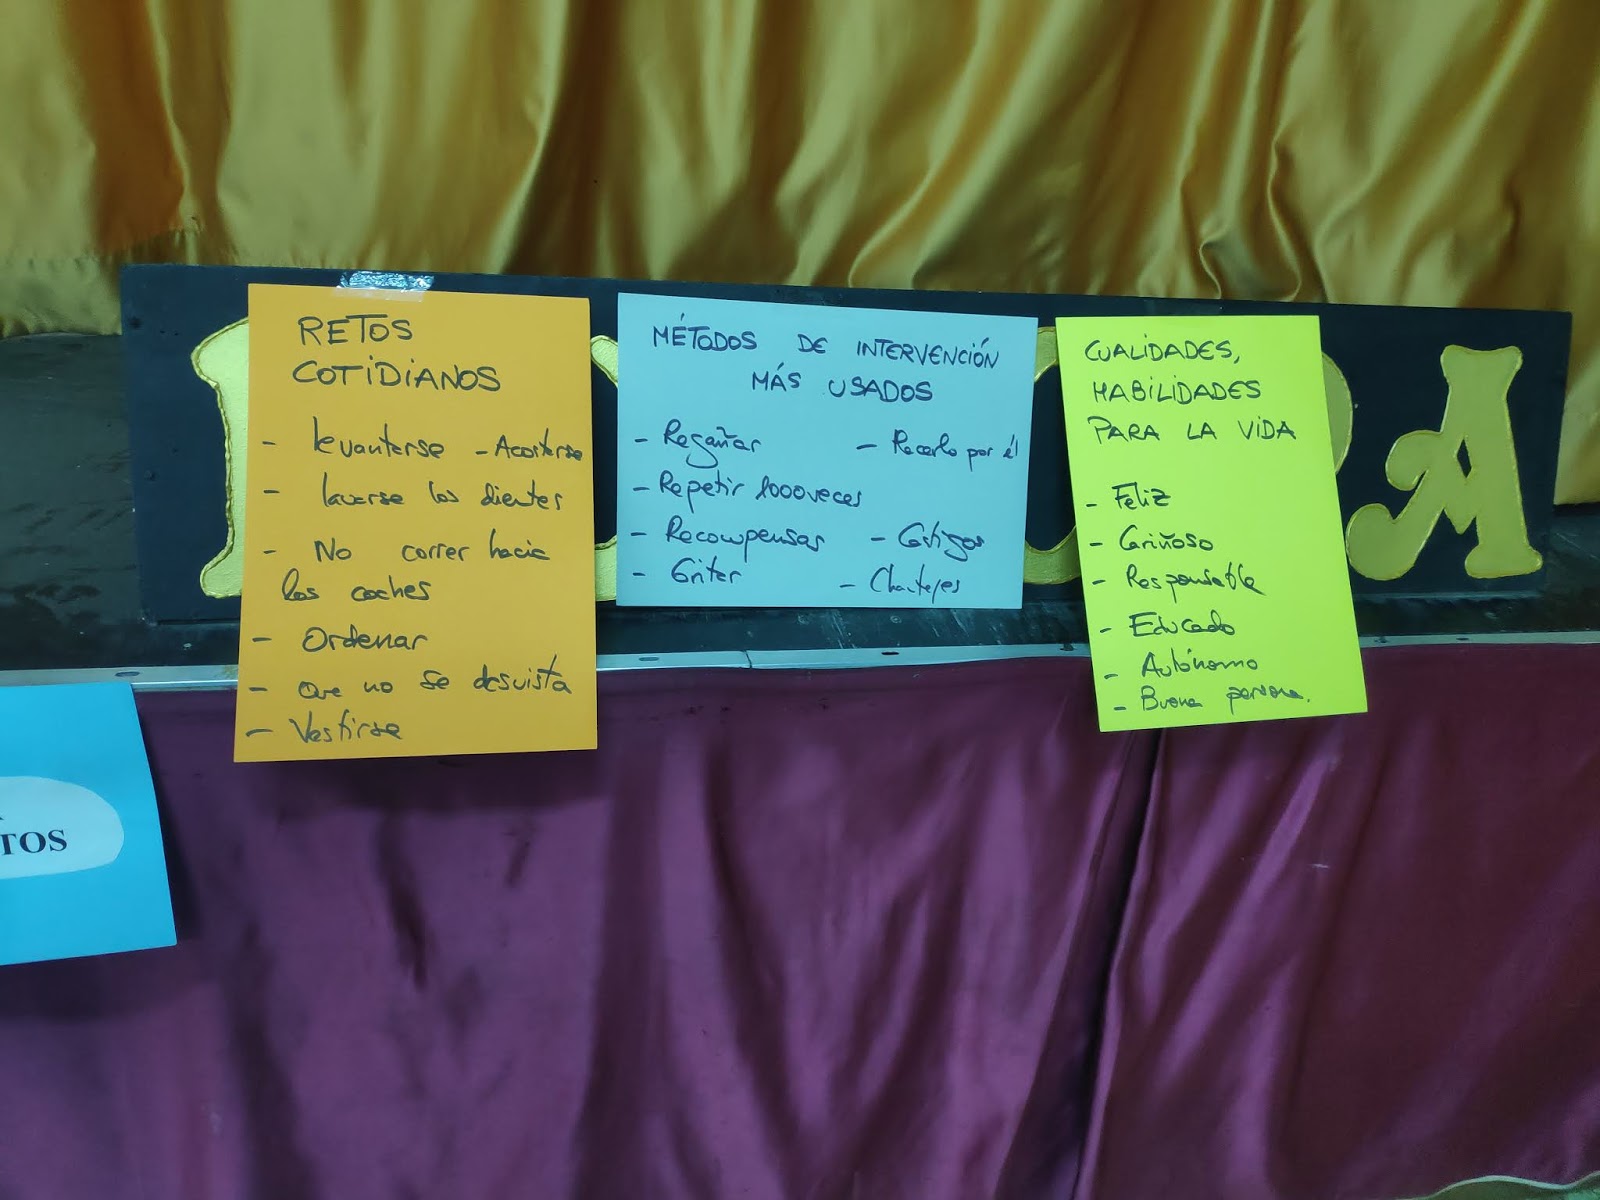 RETOS
COTIDIANOS
- levantarse - Acostarse
- lavarse los dientes
- No correr hacia
los coches
- Ordenar
- Que no se desvista
- Vestirse
MÉTODOS DE INTERVENCIÓN
MÁS USADOS
- Regañar - Hacerlo por él
- Repetir 1000 veces
- Recompensas - Castigos
- Gritar - Chantajes
CUALIDADES,
HABILIDADES
PARA LA VIDA
- Feliz
- Cariñoso
- Responsable
- Educado
- Autónomo
- Buena persona.
TOS
RA